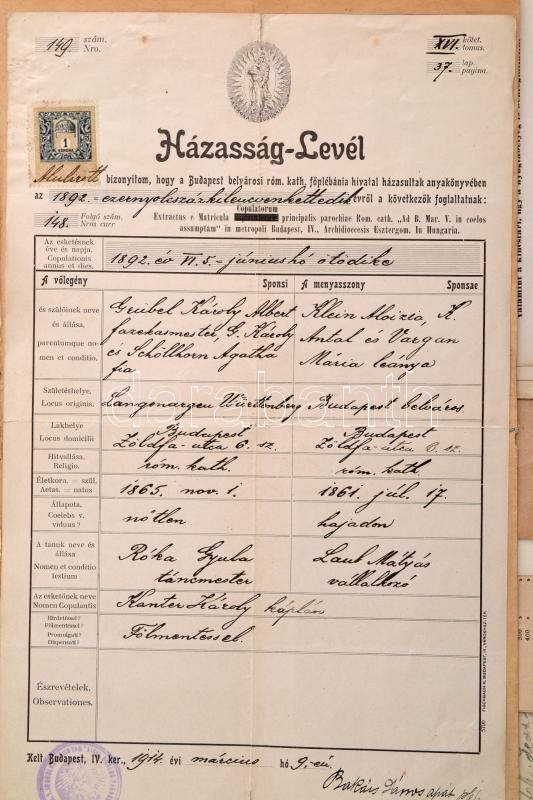 149. szám.
Nro.
XVI. kötet.
tomus.
37. lap.
pagina.
1
KORONA
Házasság-Levél
Alulirott bizonyitom, hogy a Budapest belvárosi róm. kath. főplébánia hivatal házasultak anyakönyvében
az 1892 = ezernyolczszázkilenczvenkettedik évről a következők foglaltatnak:
148. Folyó szám.
Nrus curr
Copulatorum
Extractus e Matricula principalis parochiae Rom. cath. „Ad B. Mar. V. in coelos
assumptam" in metropoli Budapest, IV., Archidioecesis Esztergom. In Hungaria.
Az esketésnek
éve és napja.
Copulationis
annus et dies.
1892. év VI. 5. = júniushó ötödike
A vőlegény Sponsi
A menyasszony Sponsae
és szülőinek neve
és állása,
parentumque no-
men et conditio.
Grübel Károly Albert
fazekasmester, G. Károly
és Schöllhorn Agatha
fia
Klein Aloizia, K.
Antal és Vargan
Mária leánya
Születéshelye.
Locus originis.
Langenargen Württenberg
Budapest belváros.
Lakhelye
Locus domicilli
Budapest
Zöldfa-utca 6. sz.
Budapest
Zöldfa-utca 6. sz.
Hitvallása.
Religio.
róm. kath.
róm. kath
Életkora. = szül.
Aetas. = natus
1865. nov. 1.
1861. jul. 17.
Állapota,
Coelebs v.
viduus ?
nőtlen
hajadon
A tanuk neve és
állása
Nomen et conditio
testium
Róka Gyula
táncmester
Laub Mátyás
vállalkozó
Az esketőnek neve
Nomen Copulantis
Kanter Károly káplán
Hirdetéssel?
Fölmentéssel?
Promulgati?
Dispensati?
Fölmentéssel.
Észrevételek.
Observationes.
Kelt Budapest, IV. ker., 1914. évi március hó 9.-én.
Bakács János apát
darabanth